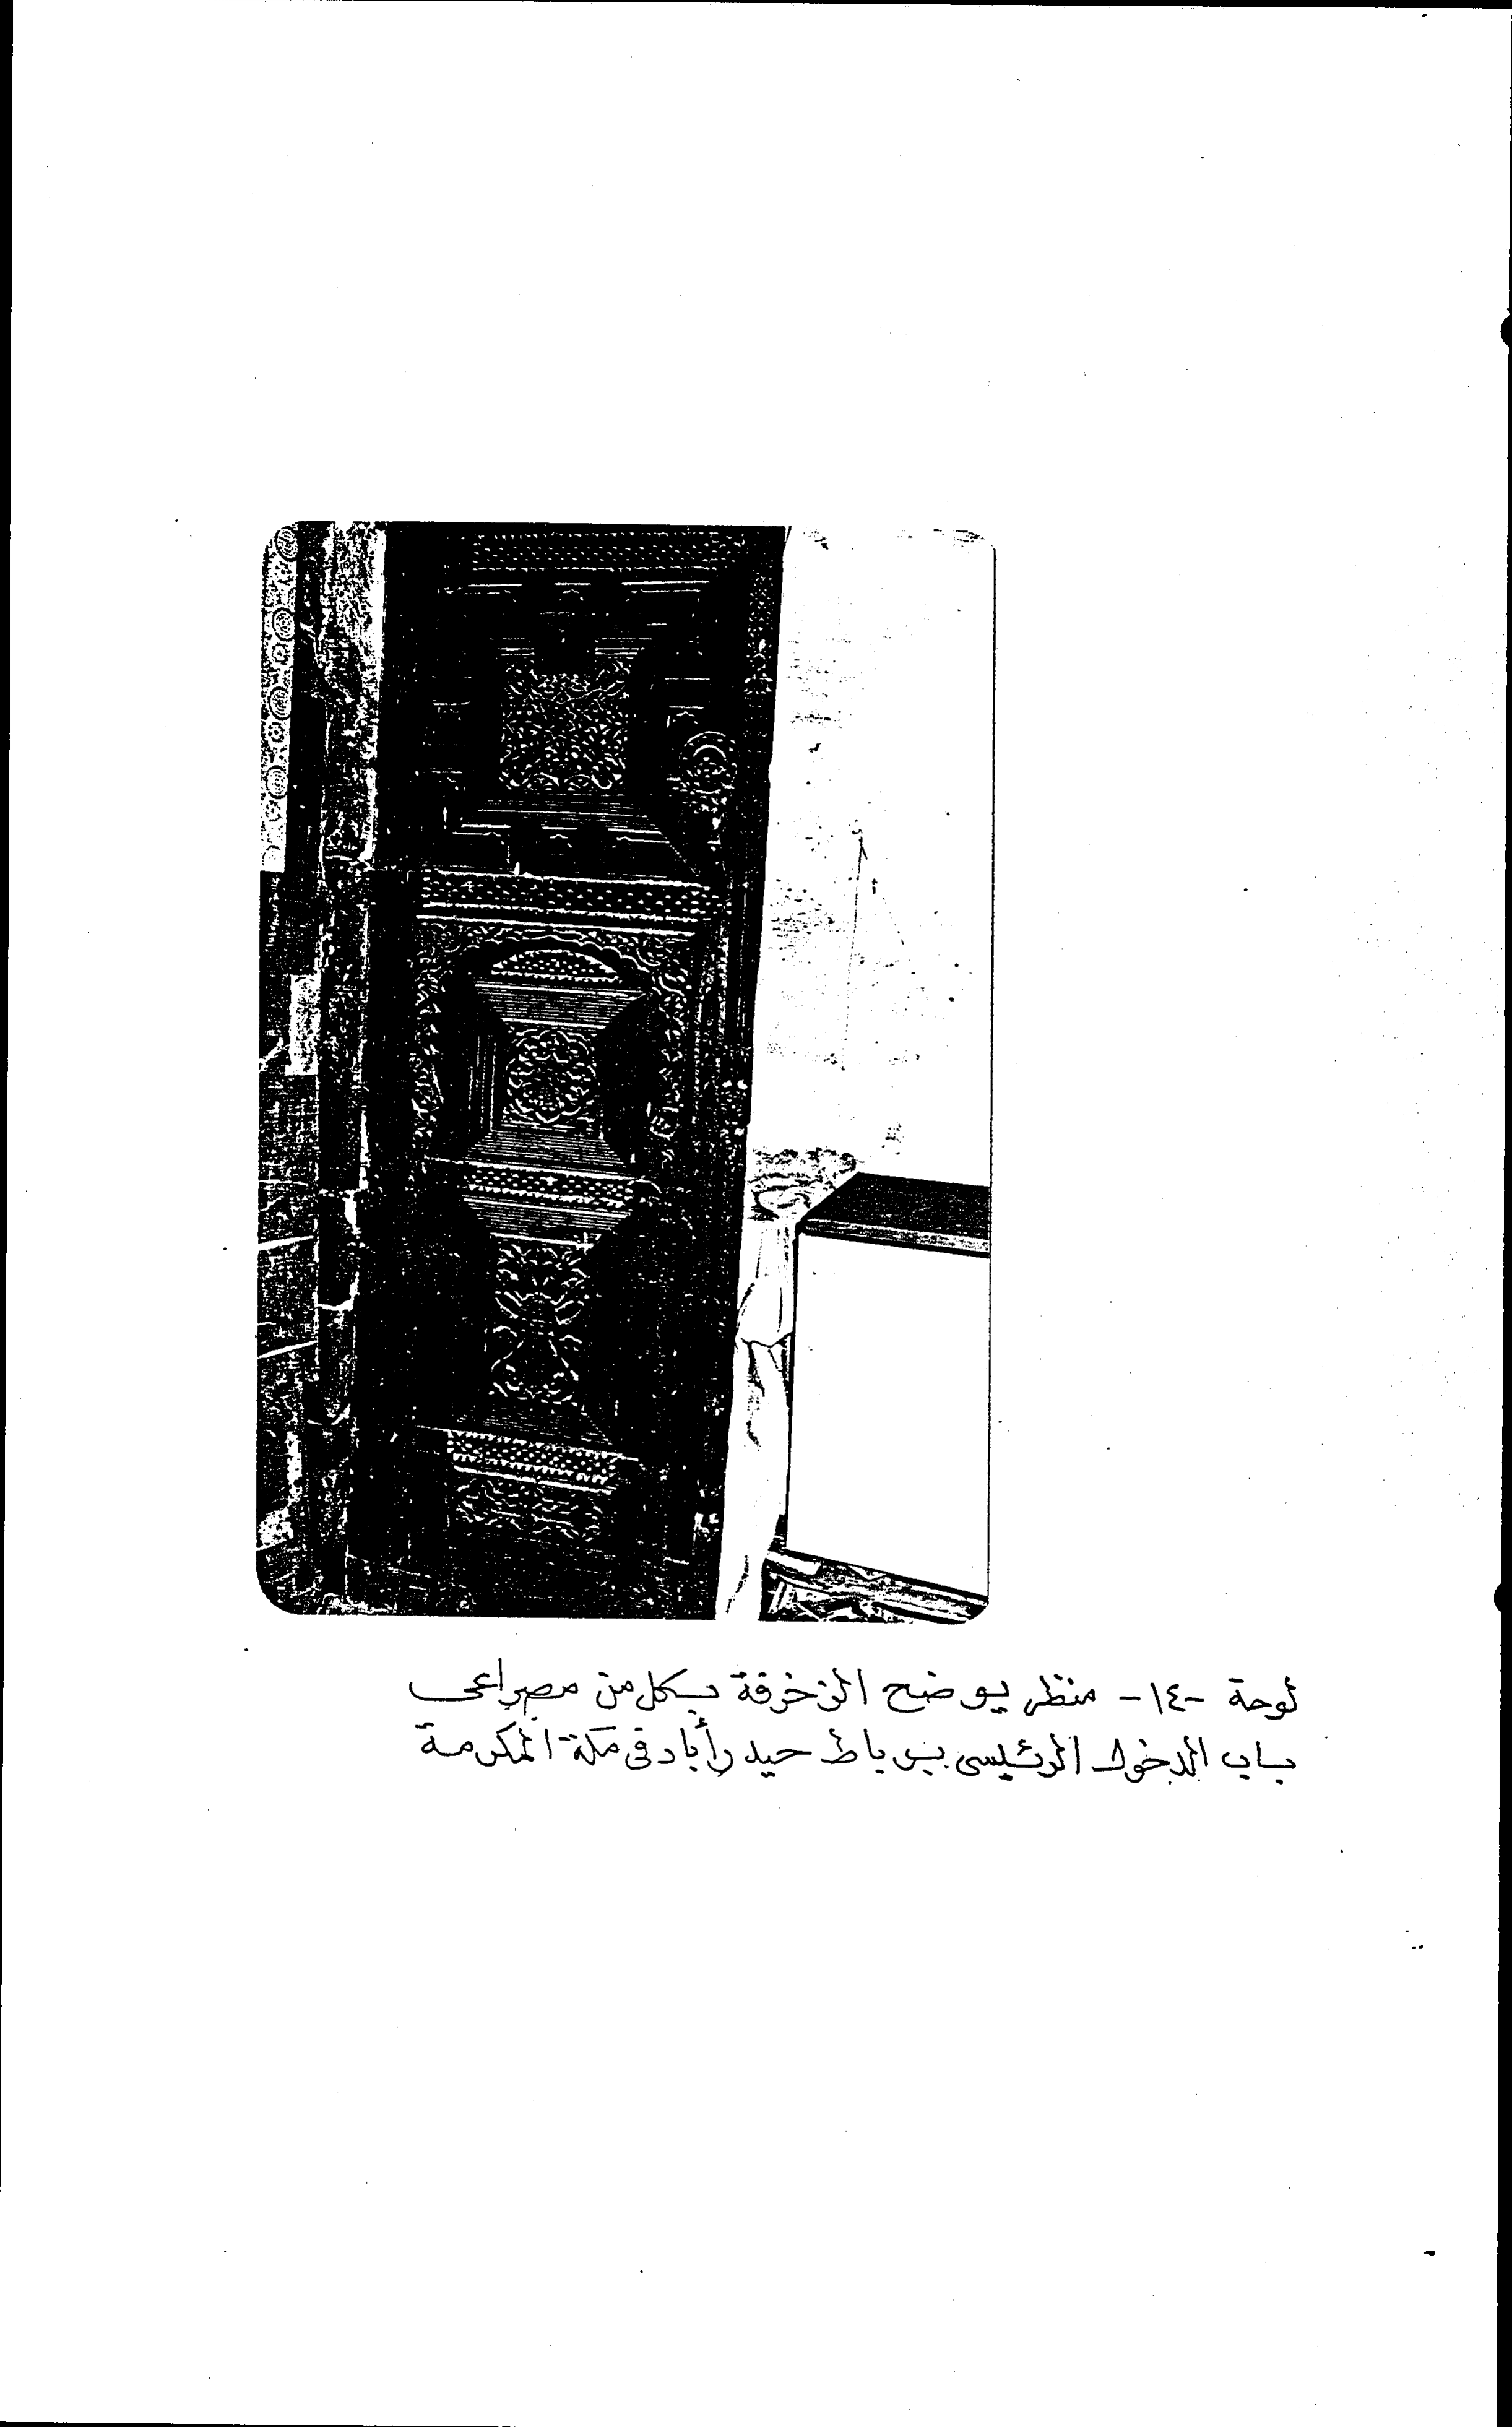 لوحة -١٤- منظر يوضح الزخرفة بكل من مصراعى
باب الدخول الرئيسى برباط حيدرأباد فى مكة المكرمة